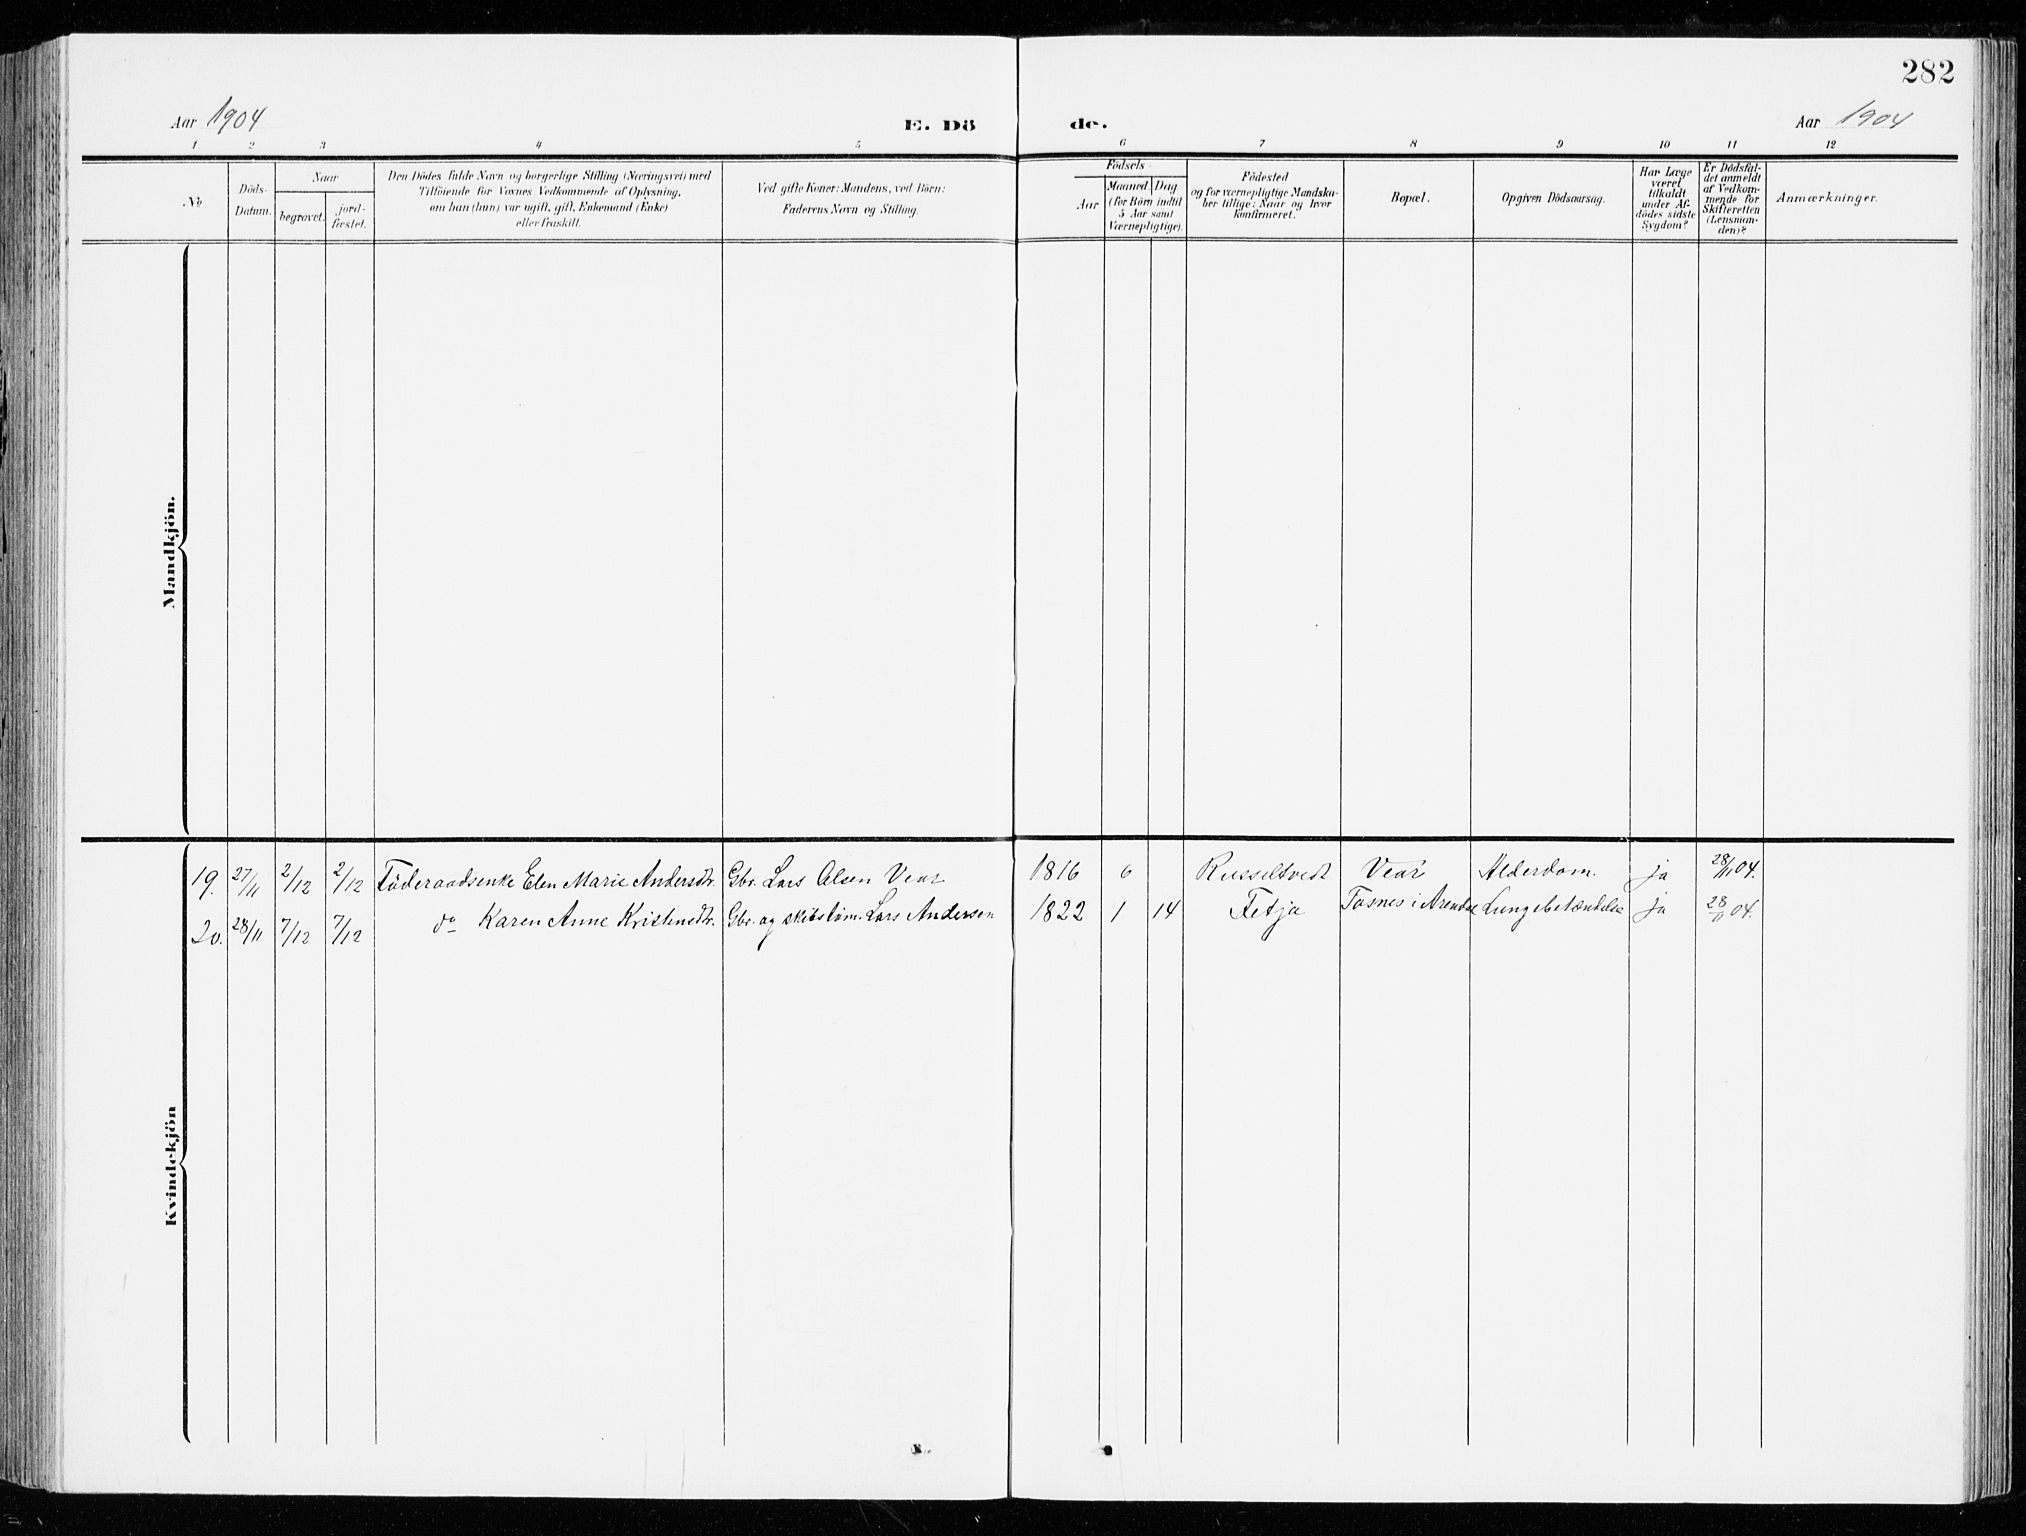 282
Aar 1904 E. Dö de. Aar 1904
1 2 3 4 5 6 7 8 9 10 11 12
No
Döds-
Datum.
Naar
begravet.
jord-
fæstet.
Den Dödes fulde Navn og borgerlige Stilling (Næringsvei) med
Tilföiende for Voxnes Vedkommende af Oplysning,
om han (hun) var ugift, gift, Enkemand (Enke)
eller fraskilt.
Ved gifte Koner: Mandens, ved Börn:
Faderens Navn og Stilling.
Födsels-
Aar
Maaned. Dag
(for Börn indtil
5 Aar samt
Værnepligtige).
Födested
og for værnepligtige Mandska-
ber tillige: Naar og hvor
konfirmeret.
Bopæl.
Opgiven Dödsaarsag.
Har Læge
været
tilkaldt
under Af-
dödes sidste
Sygdom?
Er Dödsfal-
det anmeldt
af Vedkom-
mende for
Skifteretten
(Lensman-
den)?
Anmærkninger.
Mandkjön.
Kvindekjön
19. 27/11 2/12 2/12 Föderaadsenke Elen Marie Andersdtr. Gbr. Lars Olsen Vear 1816 6 Russeltvedt Vear Alderdom. ja 28/11 04.
20. 28/11 7/12 7/12 do Karen Anne Kristensdtr. Gbr. og skibstöm. Lars Andersen 1822 1 14 Fetja i Arendal Lungebetændelse ja 28/11 04.